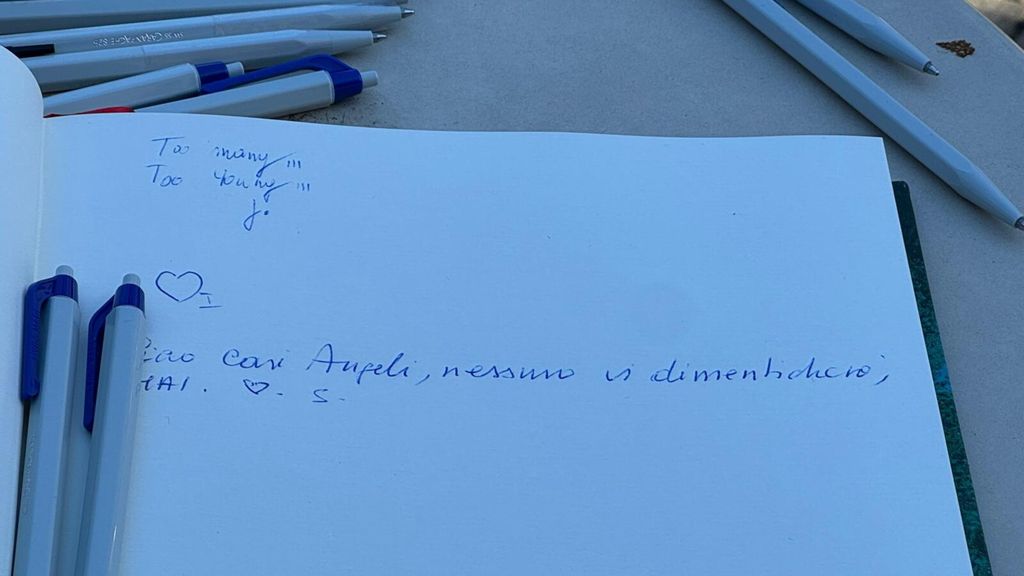 Too many !!!
Too young !!!
J.
♡ I
iao cari Angeli, nessuno vi dimenticherà,
MAI. ♡. S.